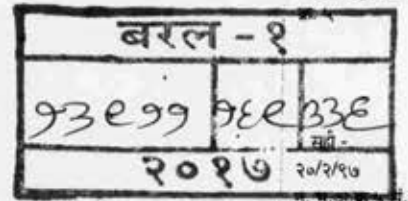 बरल - १
१३८११ १६८ ३३६
सही -
२०१७ २०/२/१७